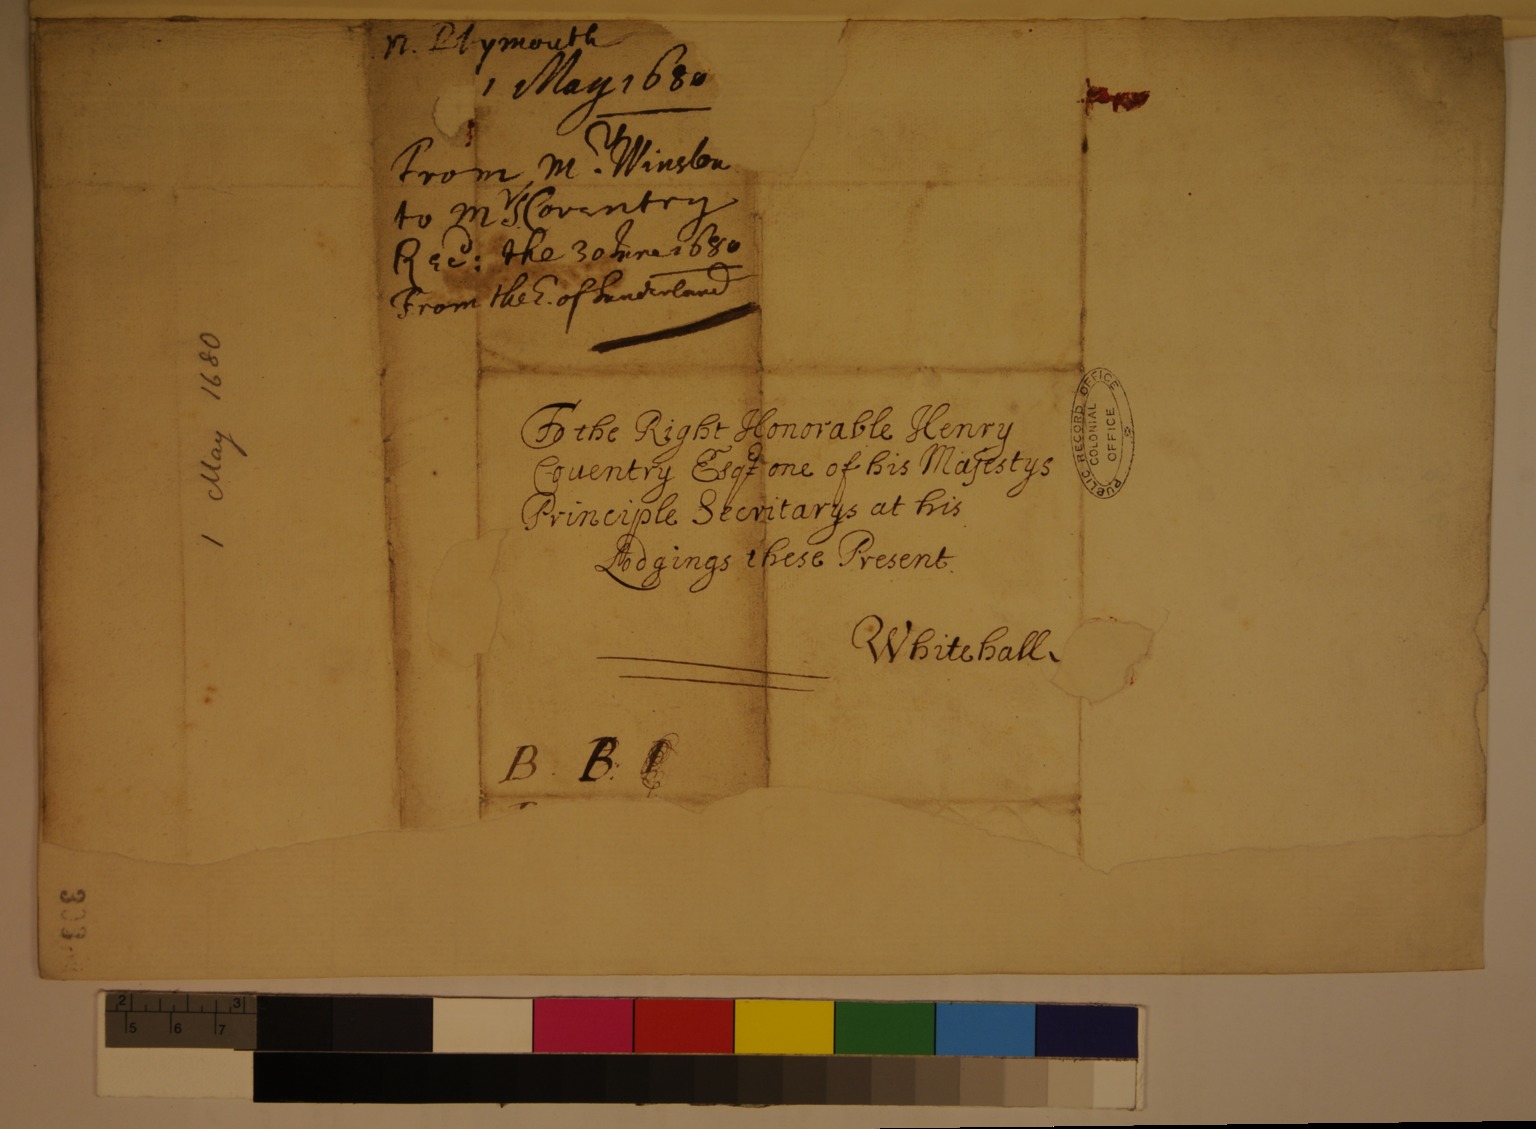 N. Plymouth
1 May 1680
From Mr. Winslow
to Mr S Coventry
Recd: the 30 June 1680
From the E. of Sunderland
1 May 1680
To the Right Honorable Henry
Couentry Esqr one of his Majestys
Principle Secritarys at his
Lodgings these Present
Whitehall
PUBLIC RECORD OFFICE
COLONIAL
OFFICE
B. B.
2 3
5 6 7